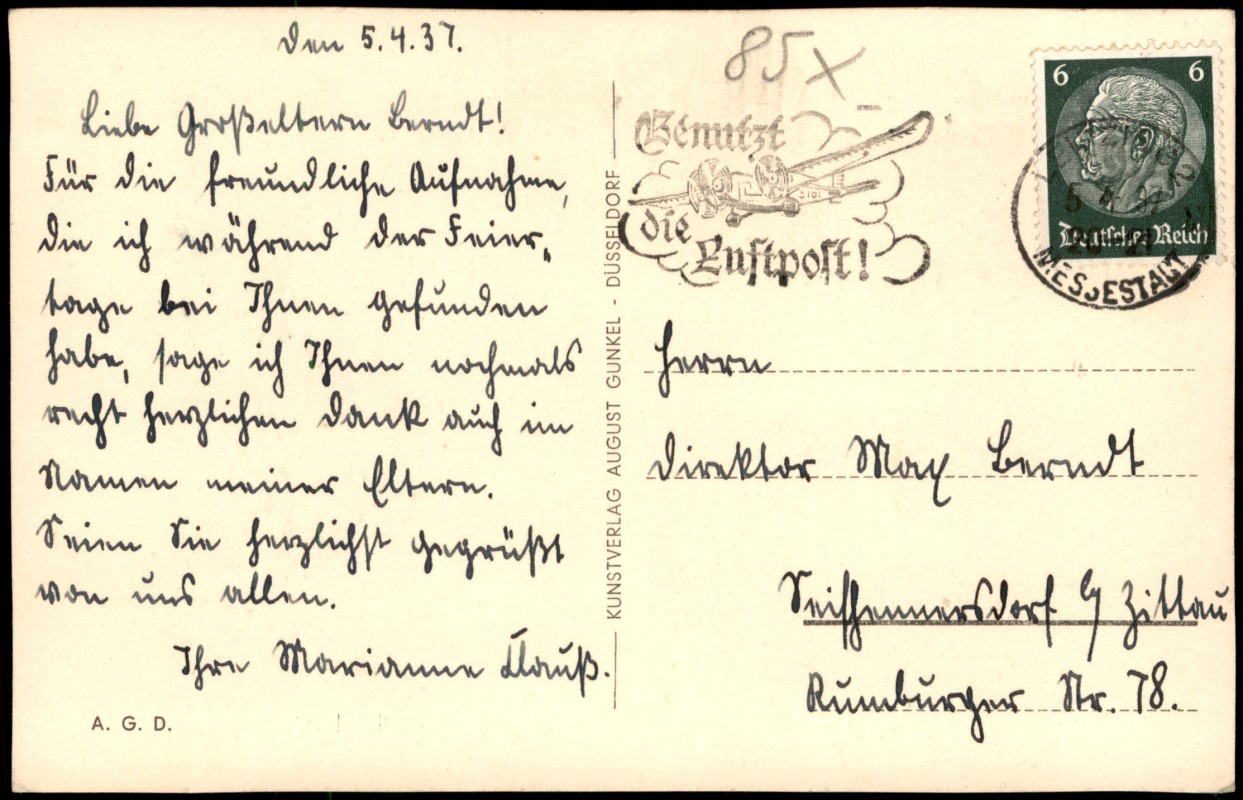 den 5.4.37.
Liebe Großeltern Berndt!
Für die freundliche Aufnahme,
die ich während der Feier-
tage bei Ihnen gefunden
habe, sage ich Ihnen nochmals
recht herzlichen Dank auch im
Namen meiner Eltern.
Seien Sie herzlichst gegrüßt
von uns allen.
Ihre Marianne Clauß.
A. G. D.
KUNSTVERLAG AUGUST GUNKEL - DÜSSELDORF
85 x
Benutzt
die
Luftpost!
6 6
Deutsches Reich
5 4 37
MESSESTADT
Herrn
Direktor Max Berndt
Seifhennersdorf b/ Zittau
Rumburger Str. 78.